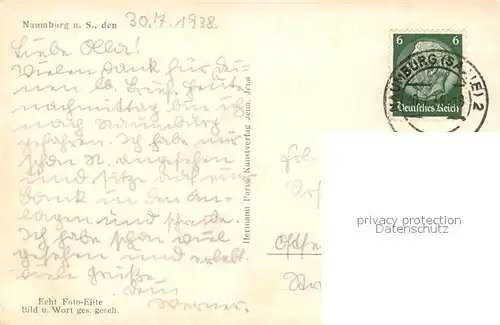 Naumburg a. S., den 30./7. 1938.
Liebe Olla!
Vielen Dank für dei-
nen lb. Brief. Heute
nachmittag bin ich
nach Naumburg
gefahren. Ich habe mir
schon N. angesehen
und sitze auf einer
Bank in den An-
lagen und schreibe.
Ich habe schon viel
gesehen und erlebt.
Viele Grüße
Dein
Werner.
Echt Foto-Elite
Bild u. Wort ges. gesch.
Hermann Paris, Kunstverlag Jena, Jena
6 6
Deutsches Reich
NAUMBURG (SAALE) 2
Frl.
privacy protection
Datenschutz